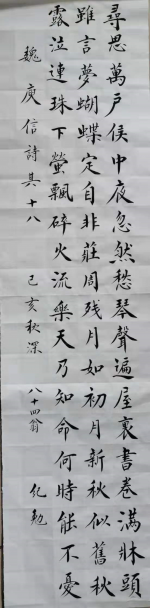 尋思萬戶侯中夜忽然愁琴聲遍屋裏書卷滿牀頭
雖言夢蝴蝶定自非莊周残月如初月新秋似舊秋
露泣連珠下螢飄碎火流樂天乃知命何時能不憂
魏 庾信詩其十八 己亥秋深 八十四翁